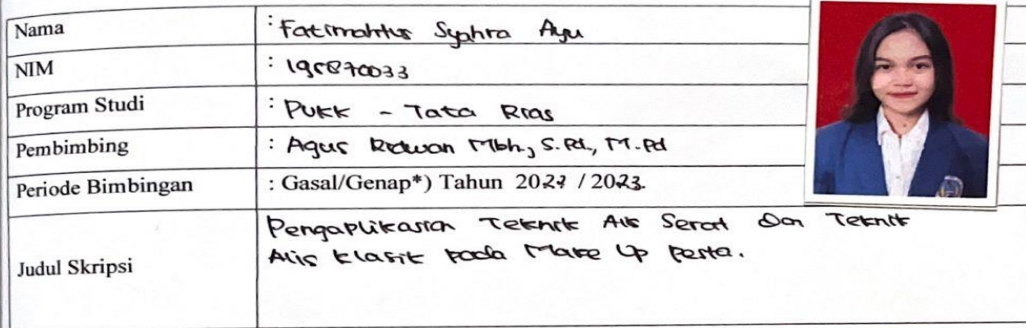 Nama : Fatimahtus Syahra Ayu
NIM : 195870033
Program Studi : PUKK - Tata Rias
Pembimbing : Agus Ridwan Mbh., S.Pd., M.Pd
Periode Bimbingan : Gasal/Genap*) Tahun 2027 / 2023.
Judul Skripsi Pengaplikasian Teknik Alis Serat Dan Teknik
Alis Klasik pada Make Up Pesta.